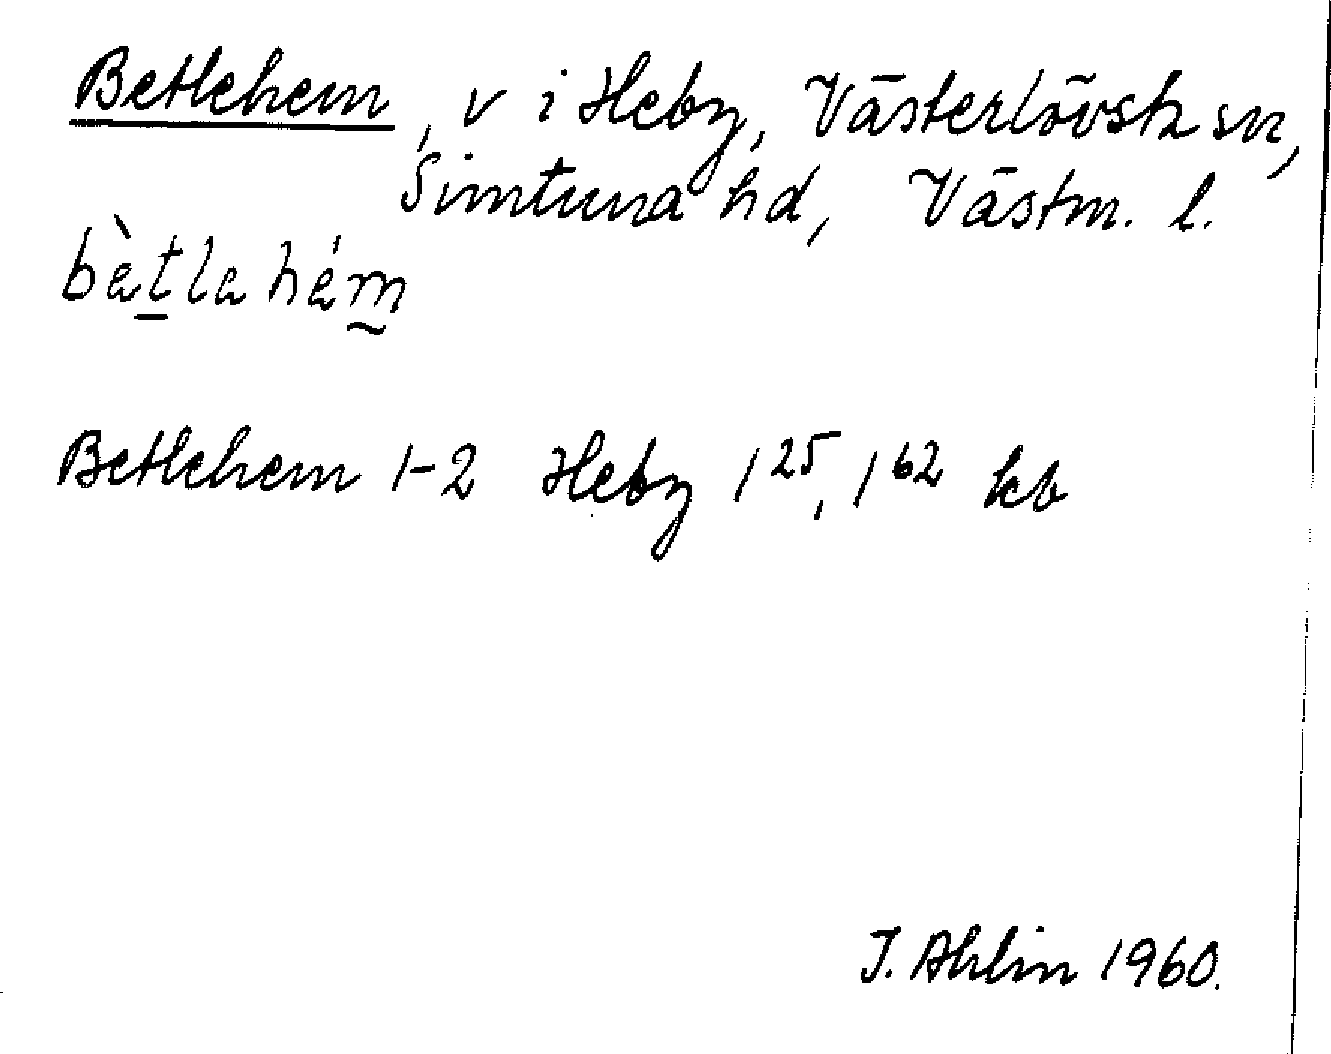 Betlehem, v i Heby, Västerlövsta sn,
Simtuna hd, Västm. l.
bètlahém
Betlehem 1-2 Heby 1²⁵, 1⁶² kb
J. Ahlin 1960.